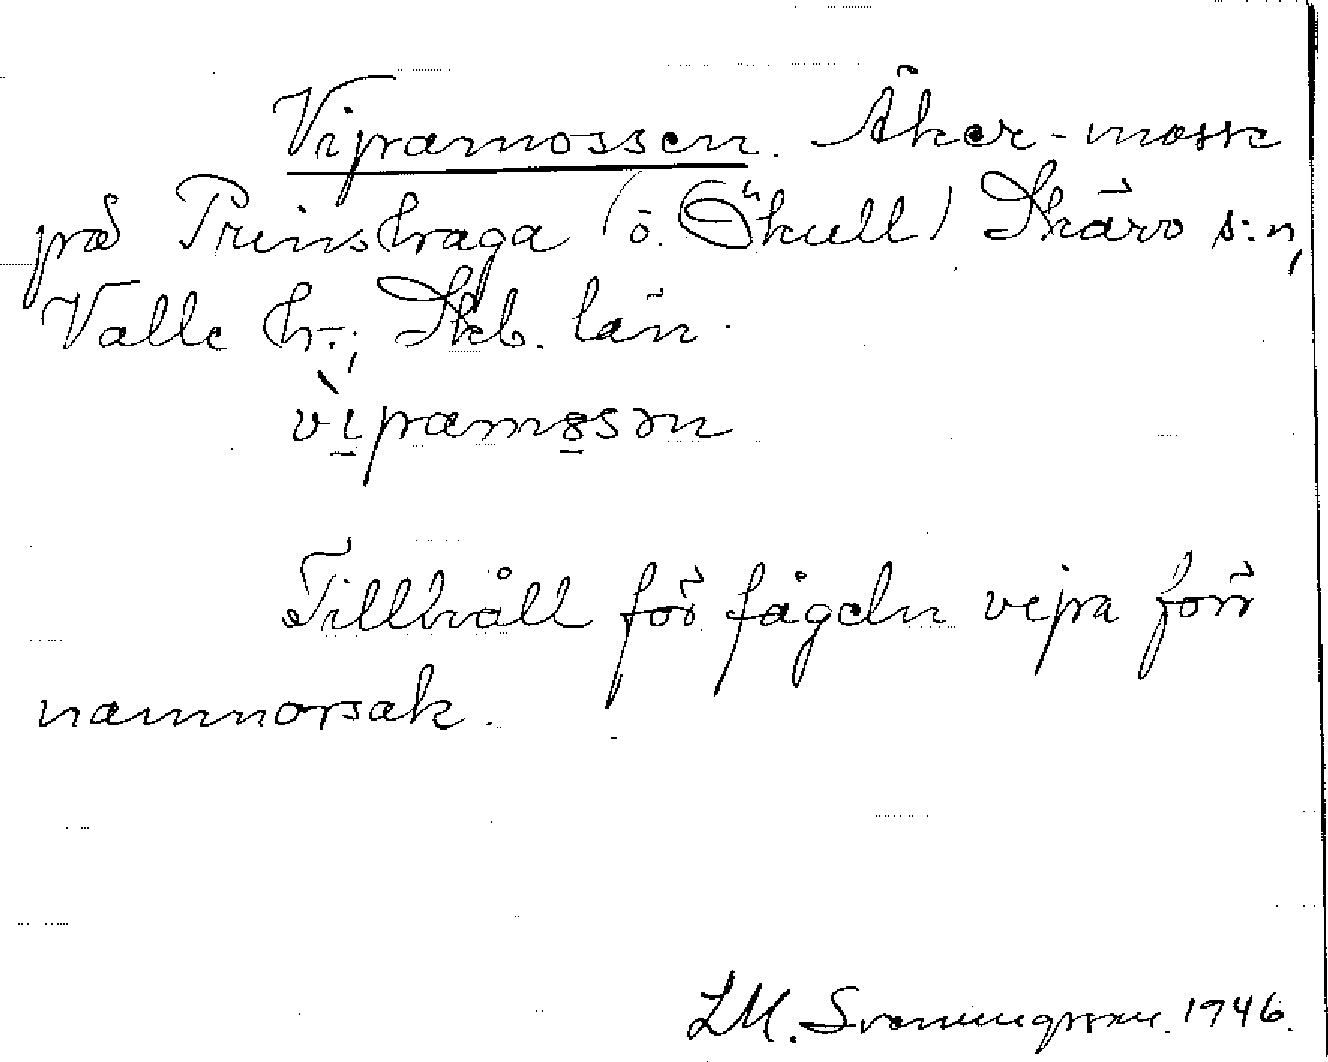 Vipamossen. Åker-mosse
på Prinshaga (ö. Ökull) Skärvs s:n,
Valle hr., Skb. län.
vipamosən
Tillhåll för fågeln vipa förr
namnorsak.
LM. Svenungsson. 1946.